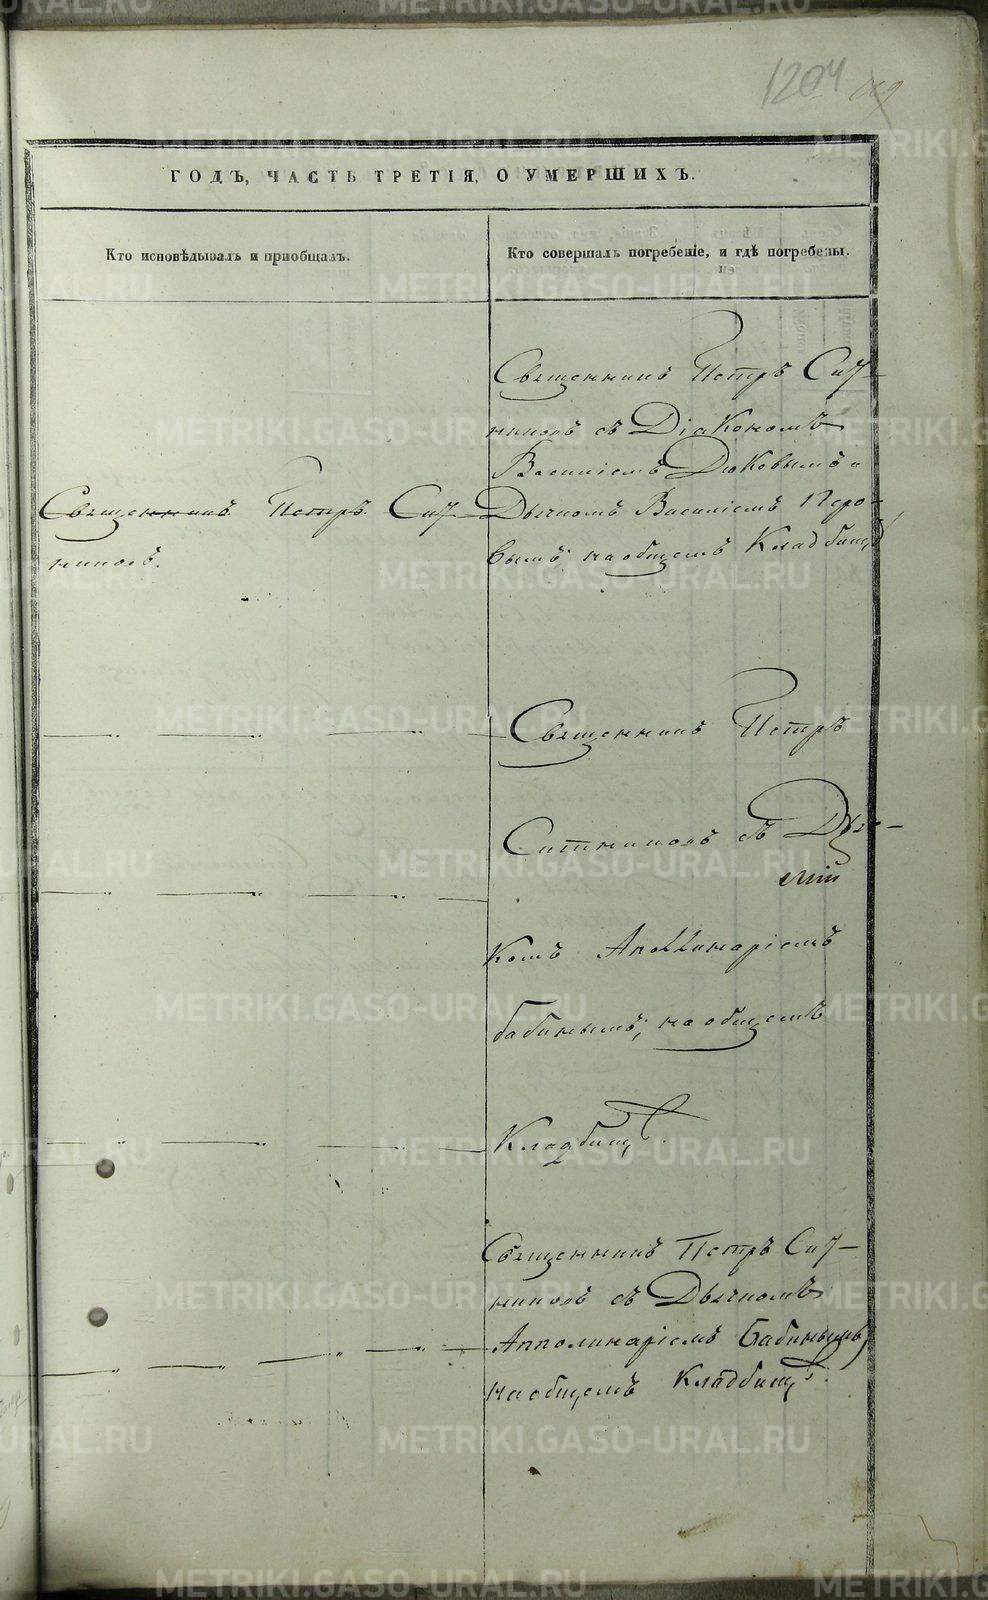 1204
ГОДЪ, ЧАСТЬ ТРЕТІЯ, О УМЕРШИХЪ.
Кто исповѣдывалъ и пріобщалъ.
Кто совершалъ погребеніе, и гдѣ погребены.
Священникъ Петръ Сит-
никовъ.
Священникъ Петръ Сит-
никовъ съ Діакономъ
Василіемъ Дюковымъ и
Дьячкомъ Василіемъ Перо-
вымъ, на общемъ Кладбищѣ
Священникъ Петръ
Ситниковъ съ Дьяч-
комъ Аполлинаріемъ
Бабинымъ, на общемъ
Кладбищѣ.
Священникъ Петръ Сит-
никовъ съ Дьячкомъ
Апполинаріемъ Бабинымъ,
на общемъ Кладбищѣ.
METRIKI.GASO-URAL.RU